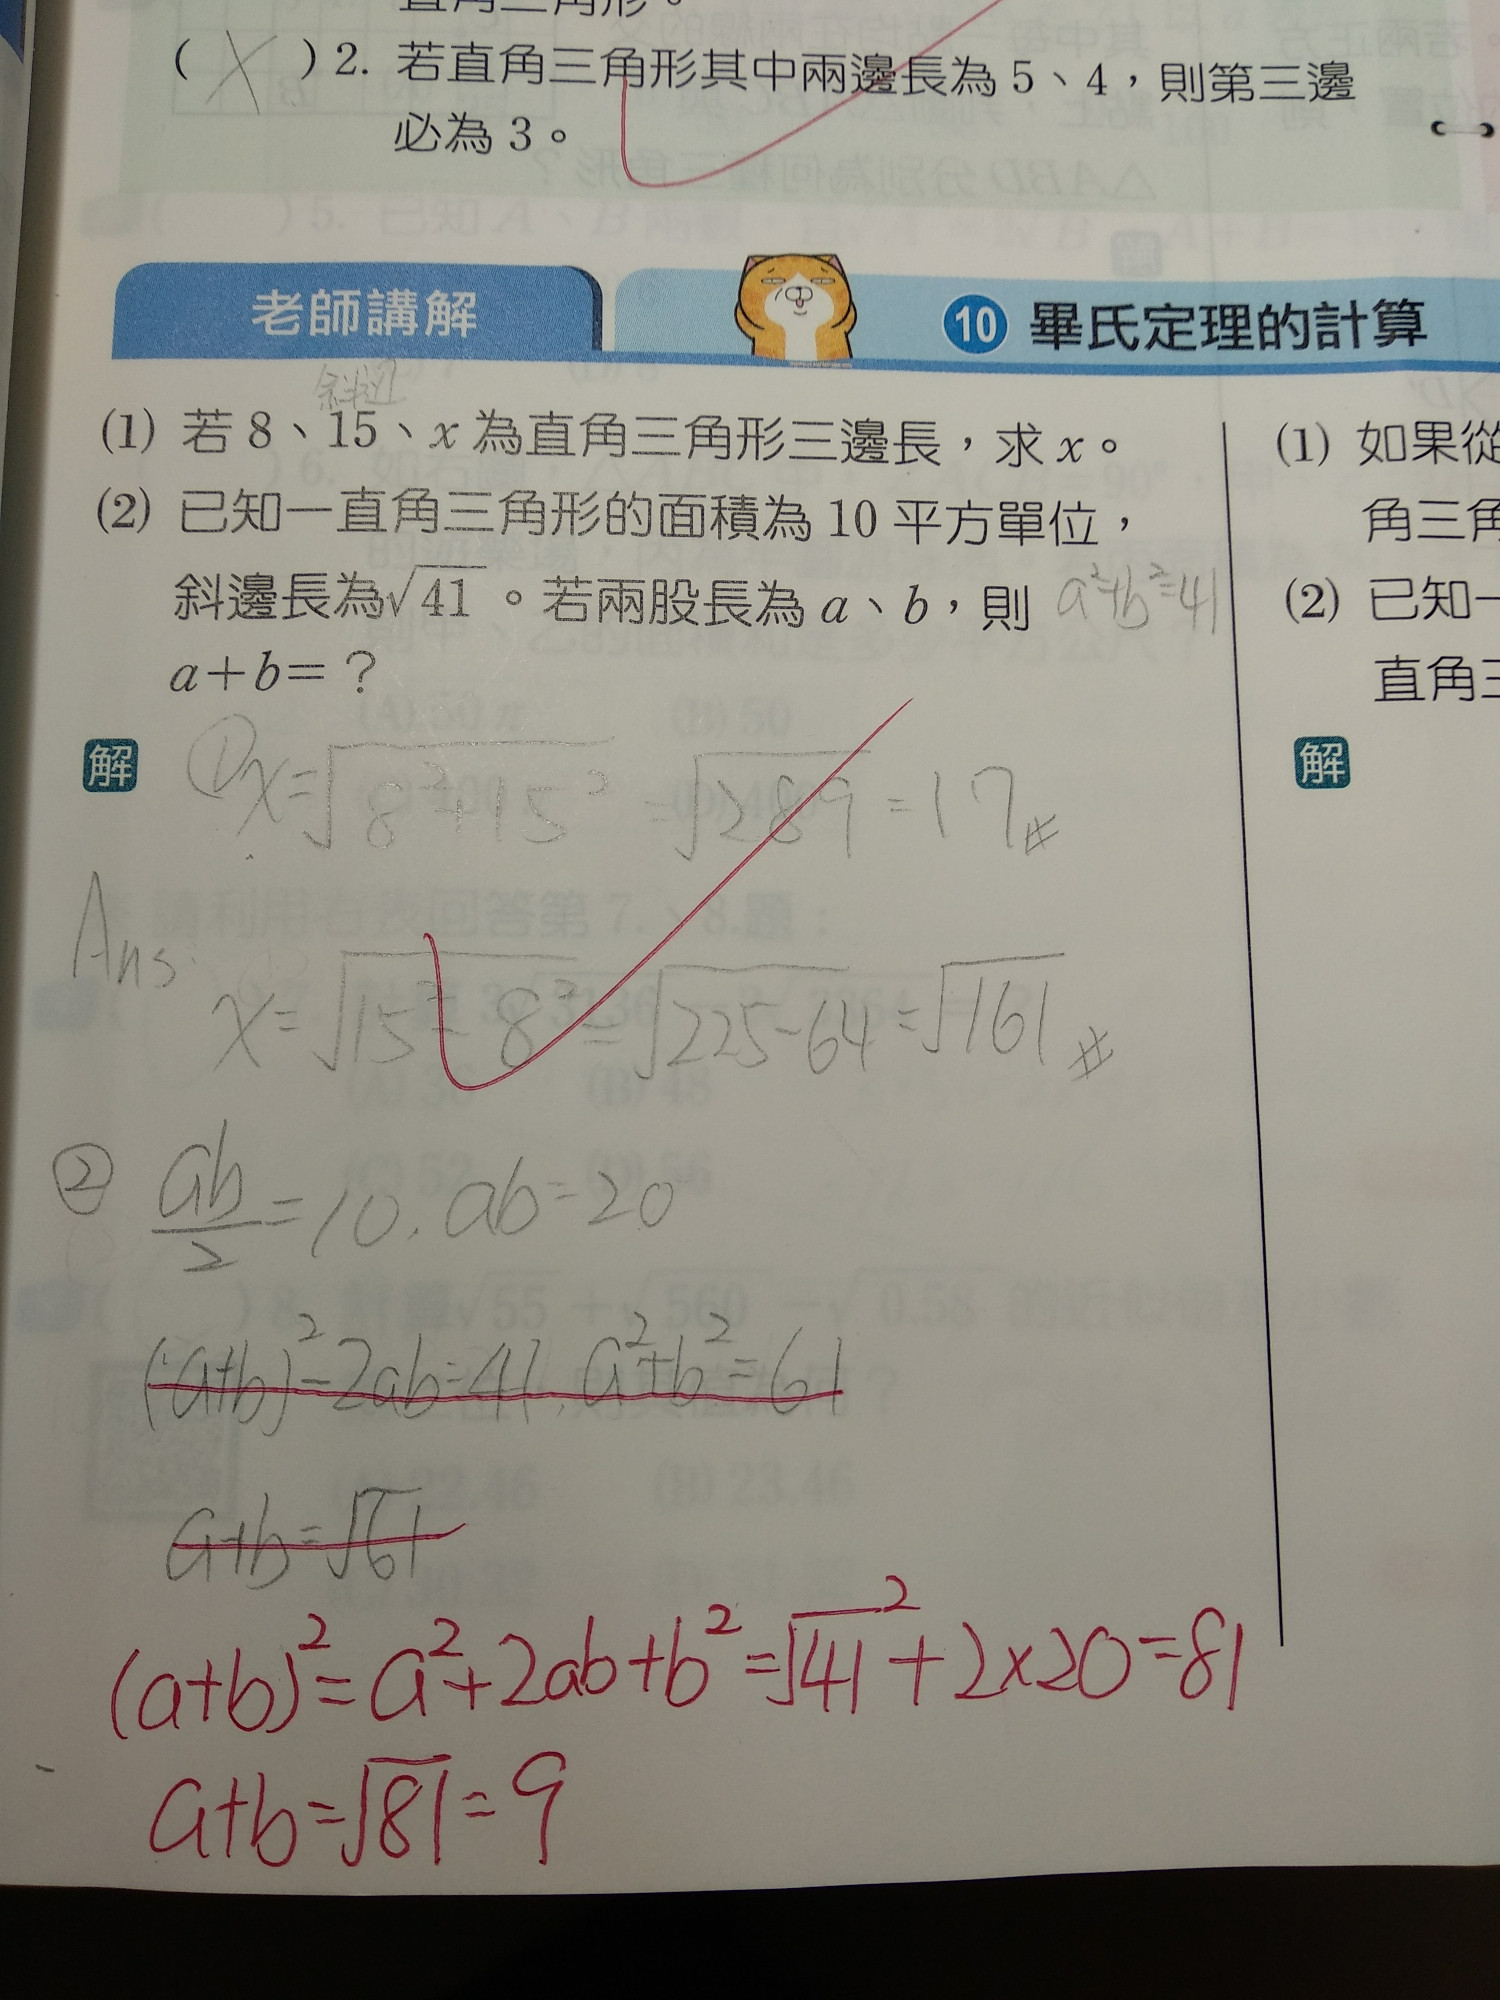 直角三角形。
( X ) 2. 若直角三角形其中兩邊長為 5、4，則第三邊
必為 3。
老師講解
10 畢氏定理的計算
斜邊
(1) 若 8、15、x 為直角三角形三邊長，求 x。
(2) 已知一直角三角形的面積為 10 平方單位，
斜邊長為√41。若兩股長為 a、b，則
a²+b²=41
a+b=？
解
① x=√8²+15² =√289 =17#
Ans.
x=√15²-8² =√225-64 =√161 #
② ab/2=10. ab=20
(a+b)²-2ab=41, a²+b²=61
a+b=√61
(a+b)²=a²+2ab+b²=√41²+2×20=81
a+b=√81=9
(1) 如果從
角三角
(2) 已知一
直角三
解